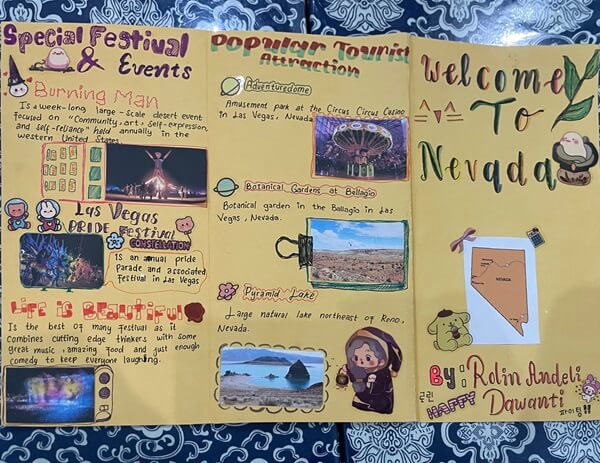 Special Festival
& Events
Burning Man
Is a week-long large-scale desert event
focused on "Community, art, self-expression,
and self-reliance" held annually in the
western United States.
Las Vegas
PRIDE Festival
CONSTELLATION
is an annual pride
Parade and associated
Festival in Las Vegas
Life is Beautiful
Is the best of many festival as it
Combines cutting edge thinkers with some
great music, amazing food and just enough
comedy to keep everyone laughing.
Popular Tourist
Attraction
Adventuredome
Amusement park at the Circus Circus Casino
in Las Vegas, Nevada
Botanical Gardens at Bellagio
Botanical garden in the Ballagio in Las
Vegas, Nevada.
Pyramid Lake
Large natural lake northeast of Reno,
Nevada.
Welcome
To
Nevada
NEVADA
By: Rolin Andeli
Dawanti
로린
HAPPY
파이팅!!